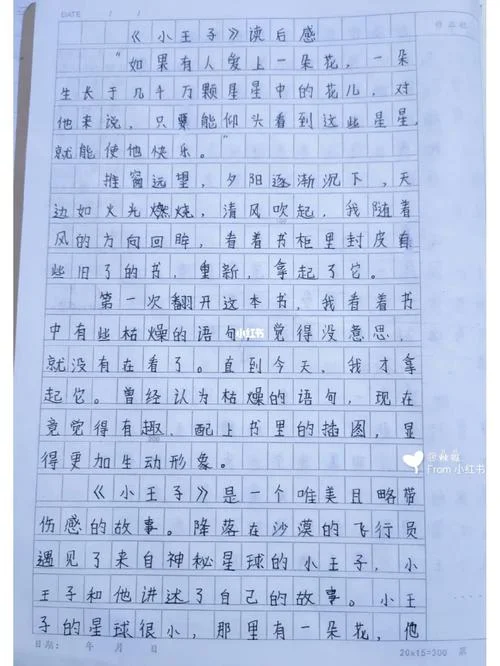 DATE / /
《小王子》读后感
“如果有人爱上一朵花，一朵
生长于几千万颗星星中的花儿，对
他来说，只要能仰头看到这些星星，
就能使他快乐。”
推窗远望，夕阳逐渐沉下，天
边如火光燃烧，清风吹起，我随着
风的方向回眸，看着书柜里封皮有
些旧了的书，重新，拿起了它。
第一次翻开这本书，我看着书
中有些枯燥的语句，觉得没意思，
就没有在看了。直到今天，我才拿
起它。曾经认为枯燥的语句，现在
竟觉得有趣，配上书里的插图，显
得更加生动形象。
《小王子》是一个唯美且略带
伤感的故事。降落在沙漠的飞行员
遇见了来自神秘星球的小王子，小
王子和他讲述了自己的故事。小王
子的星球很小，那里有一朵花，他
日期： 年 月 日
20×15=300 第
小红书
From 小红书